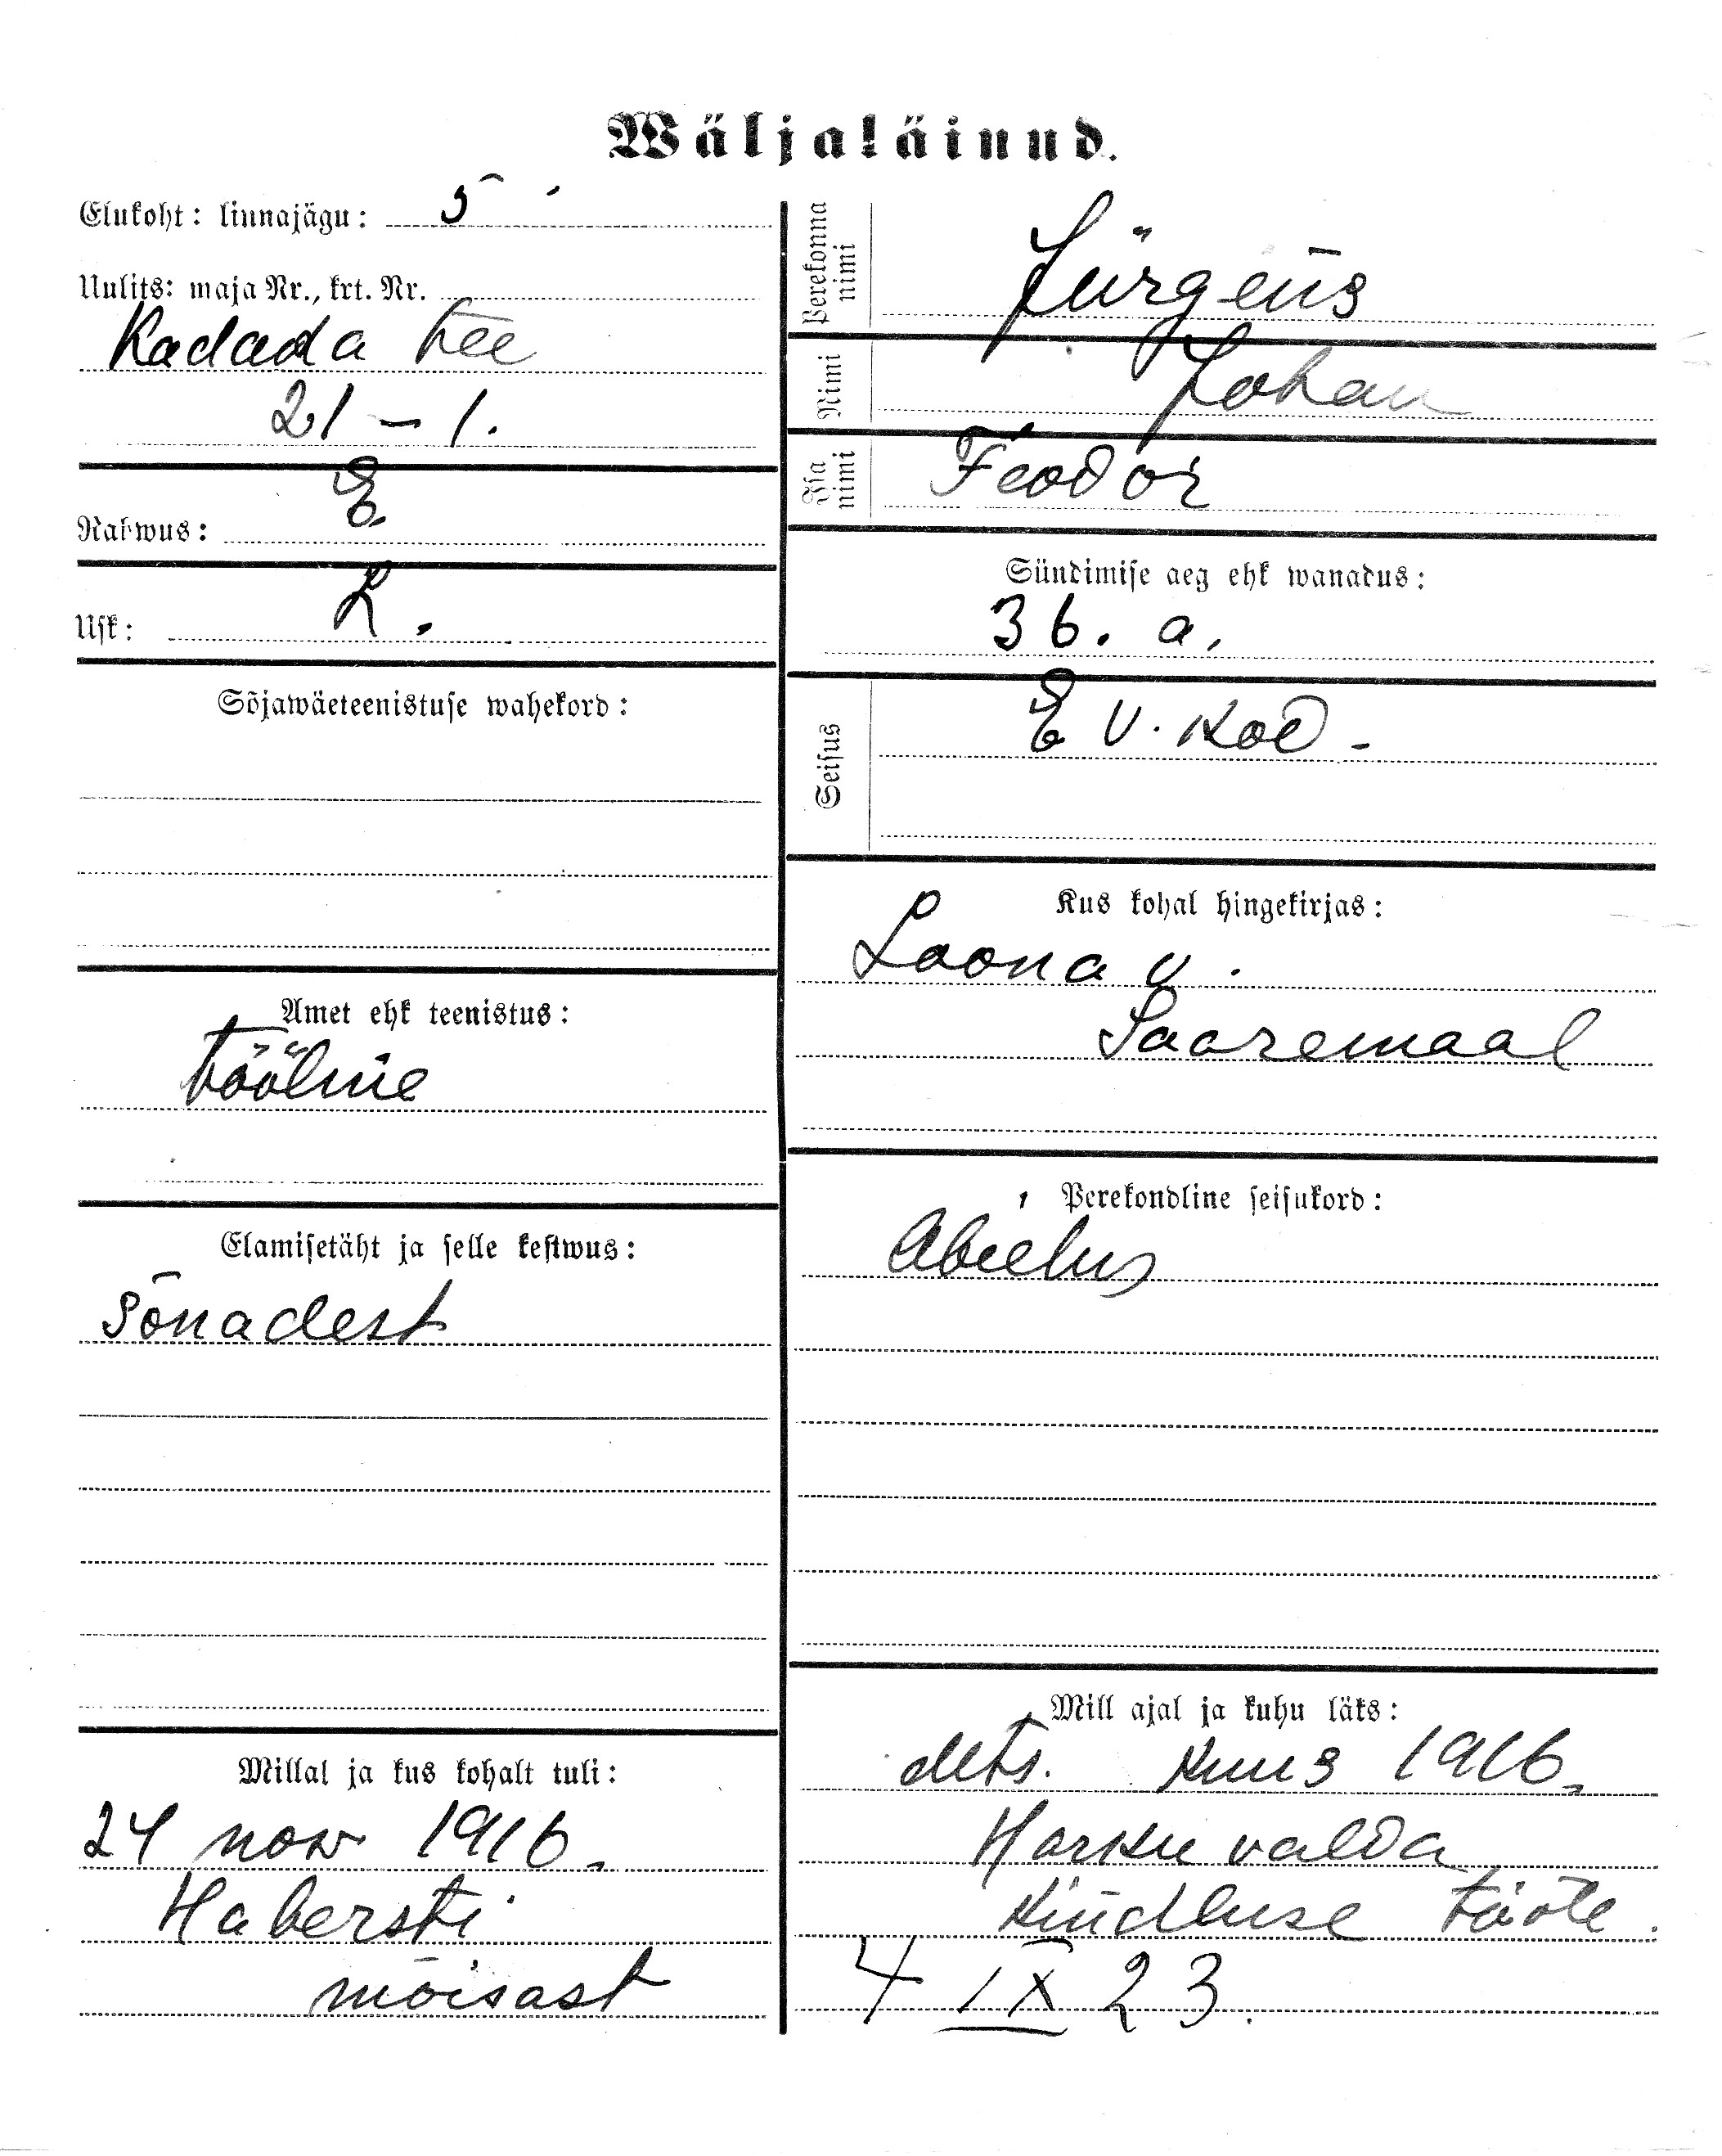 Wäljaläinud.
Elukoht: linnajägu: 5
Uulits: maja Nr., krt. Nr.
Kadada tee
21 – 1.
Rahwus: E.
Usk: L.
Sõjawäeteenistuse wahekord:
Amet ehk teenistus:
Tööline
Elamisetäht ja selle kestwus:
Sõnadest
Millal ja kus kohalt tuli:
24 now 1916.
Habersti
mõisast
Perekonna
nimi
Jürgens
Nimi
Johan
Isa
nimi
Feodor
Sündimise aeg ehk wanadus:
36. a.
Seisus
E V. kod.
Kus kohal hingekirjas:
Loona v.
Saaremaal
Perekondline seisukord:
Abielus
Mill ajal ja kuhu läks:
dets. kuus 1916.
Harku valda
kindluse tööle.
4 IX 23.